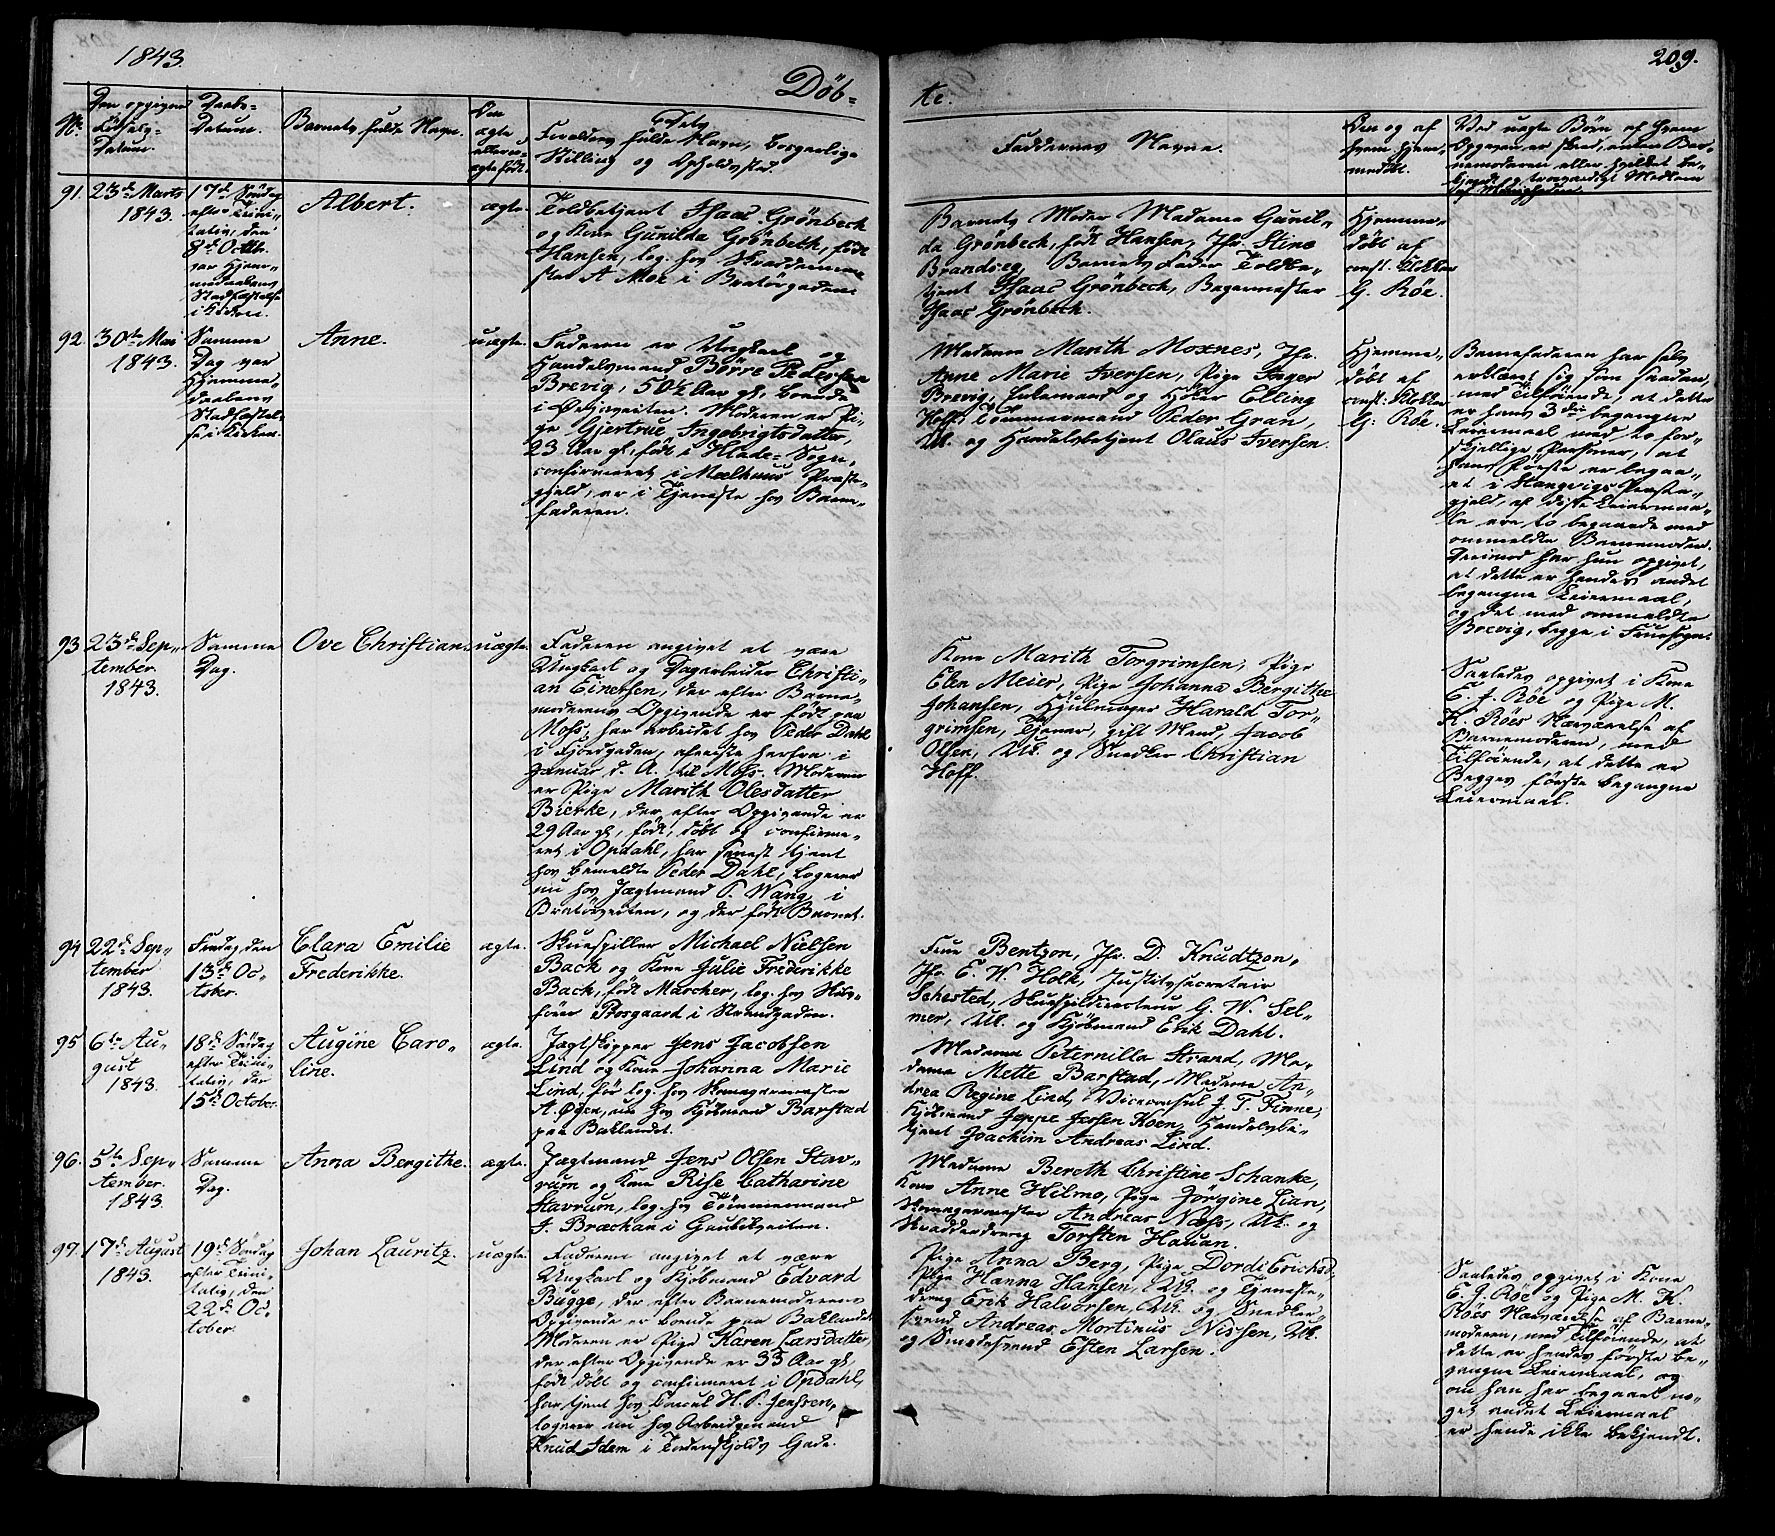 1843.
209.
Döb-
te.
No.
Den opgivne
Födsels-
Datum.
Daabs-
Datum.
Barnets fulde Navn.
Om
ægte
eller u-
ægte født.
Forældres fulde Navn, borgerlige
Stilling og Opholdssted.
Faddernes Navne.
Om og af
hvem hjem-
medøbt.
91.
23de Marts
1843.
17de Søndag
efter Trini-
tatis, den
8de Octbr.
var Hjem-
medaabens
Stadfæstelse
i Kirken.
Albert.
ægte.
Toldbetjent Isaac Grönbech
og Kone Gunilda Grönbech, født
Hansen, log. hos Skræddermes-
ter A. Moe i Bratørgaden.
Barnets Moder Madame Gunil-
da Grönbech, født Hansen, Jfr. Stine
Brandseg, Barnets Fader Toldbe-
tjent Isaac Grönbech, Bagermester
Isaac Grönbech.
Hjemme-
døbt af
const. Klokker
G. Röe.
92.
30te Mai
1843.
Samme
Dag var
Hjemme-
daabens
Stadfæstel-
se i Kirken.
Anne.
uægte.
Faderen er Ungkarl og
Handelsmand Börre Pedersen
Brevig, 50½ Aar gl., boende
i Ørjaveiten. Moderen er Pi-
ge Gjertrue Ingebrigtsdatter,
23 Aar gl., født i Hlade-Sogn,
confirmeret i Mælhuus Præste-
gjeld, er i Tjeneste hos Barne-
faderen.
Madame Marith Moxnes, Jfr.
Anne Marie Iversen, Pige Inger
Brevig, Huusmand og Høker Elling
Hoff, Tømmermand Peder Gran,
Uk. og Handelsbetjent Olaus Iversen.
Hjemme-
døbt af
const. Klokker
G. Röe.
Barnefaderen har selv
erklæret sig som saadan,
med Tilføiende, at dette
er hans 3die begangne
Leiermaal med to for-
skjellige Personer, at
hans Første er begaa-
et i Stangvigs Præste-
gjeld, af disse Leiermaa-
le ere to begaaede med
ommeldte Barnemoder.
Derimod har hun opgivet,
at dette er hendes andet
begangne Leiermaal,
og det med ommeldte
Brevig, begge i Fruesogn.
93.
23de Sep-
tember
1843.
Samme
Dag.
Ove Christian.
uægte.
Faderen angivet at være
Ungkarl og Dagarbeider Christi-
an Einersen, der efter Barne-
moderens Opgivende er født paa
Moss, har arbeidet hos Peder Dahl
i Fjordgaden, afreiste herfra i
Januar d. A. til Moss. Moderen
er Pige Marith Olesdatter
Bierke, der efter Opgivende er
29 Aar gl., født, døbt og confirme-
ret i Opdahl, har senest tjent
hos bemeldte Peder Dahl, logerer
nu hos Jægtmand P. Wang i
Bratørveiten, og der født Barnet.
Kone Marith Torgrimsen, Pige
Elen Meier, Pige Johanna Bergithe
Johansen, Hjulmager Harald Tor-
grimsen, Tjener, gift Mand, Jacob
Olsen, Uk. og Snedker Christian
Hoff.
Saaledes opgivet i Kone
E. J. Röe og Pige M.
K. Röes Nærværelse af
Barnemoderen, med
Tilføiende, at dette er
Begges første begangne
Leiermaal.
94.
22de Sep-
tember
1843.
Fredag den
13de Oc-
tober.
Clara Emilie
Frederikke.
ægte.
Skuespiller Michael Nielsen
Back og Kone Julie Frederikke
Back, født Marcher, log. hos Huus-
fører Frosgaard i Strandgaden.
Frue Bentzon, Jfr. D. Knudtzon,
Jfr. E. W. Holk, Justitssecretair
Schested, Skuespildirecteur G. W. Sel-
mer, Uk. og Kjöbmand Erik Dahl.
95.
6te Au-
gust
1843.
18de Søndag
efter Trini-
tatis, den
15de October.
Augine Caro-
line.
ægte.
Jægtskipper Jens Jacobsen
Lind og Kone Johanna Marie
Lind, før log. hos Skomagermester
A. Øien, nu hos Kjöbmand Barstad
paa Baklandet.
Madame Peternilla Strand, Ma-
dame Mette Barstad, Madame An-
drea Regine Lind, Viceconsul J. T. Finne,
Kjöbmand Jeppe Jessen Koen, Handelsbe-
tjent Joachim Andreas Lind.
96.
5te Sep-
tember
1843.
Samme
Dag.
Anna Bergithe.
ægte.
Jægtmand Jens Olsen Stav-
rum og Kone Rise Catharine
Stavrum, log. hos Tömmermand
J. Bræckan i Gaubækveiten.
Madame Bereth Christine Schanke,
Kone Anne Hilmo, Pige Jörgine Lian,
Skomagermester Andreas Næss, Uk. og
Skrædderdreng Torsten Hauan.
97.
17de August
1843.
19de Søndag
efter Trini-
tatis, den
22de Oc-
tober.
Johan Lauritz.
uægte.
Faderen angivet at være
Ungkarl og Kjöbmand Edvard
Bugge, der efter Barnemoderens
Opgivende er boende paa Baklandet.
Moderen er Pige Karen Larsdatter,
der efter Opgivende er 33 Aar gl.,
født, døbt og confirmeret i Opdahl,
har tjent hos Consul H. P. Jenssen,
logerer nu hos Arbeidsmand
Knud Idem i Tordenskjolds Gade.
Pige Anna Berg, Pige Dordi Erichsd.,
Pige Hanna Hansen, Uk. og Tjeneste-
dreng Erik Halvorsen, Uk. og Snedker-
svend Andreas Mortinus Nissen, Uk.
og Smedesvend Esten Larsen.
Saaledes opgivet i Kone
E. J. Röe og Pige M. K.
Röes Nærværelse af Barne-
moderen, med Tilføiende, at
dette er hendes første be-
gangne Leiermaal, og
om han har begaaet no-
get andet Leiermaal
er hende ikke bekjendt.